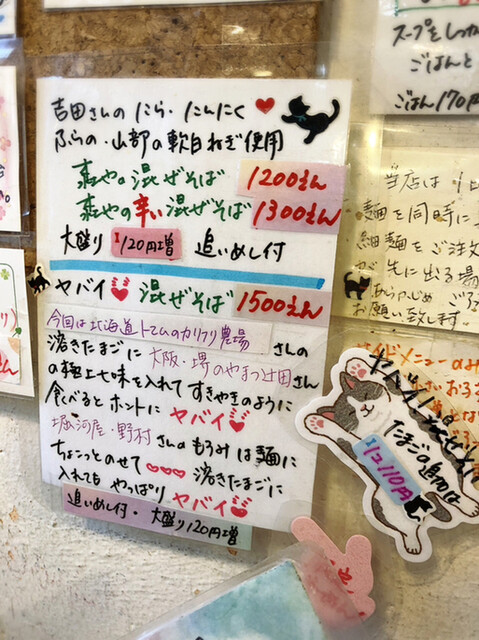 吉田さんの にら・にんにく
ふらの・山部の軟白ねぎ使用
混ぜそば 1200えん
の辛い混ぜそば 1300えん
大盛り 120円増 追いめし付
ヤバイ 混ぜそば 1500えん
今回は北海道トムのカリフリ農場さんの
溶きたまごに 大阪・堺のやまつ辻田さん
の極上七味を入れて すきやきのように
食べるとホントに ヤバイ
堀河屋・野村さんのもろみは麺に
ちょこっとのせて 溶きたまごに
入れても やっぱり ヤバイ
追いめし付・大盛り120円増
スープをしっか
ごはんと
ごはん170円
当店は
麺を同時に
細麺をご注文
先に出る場
あらかじめ ご
お願い致します。
イドメニューのみ
ヤバイ
たまごの追加は
110円